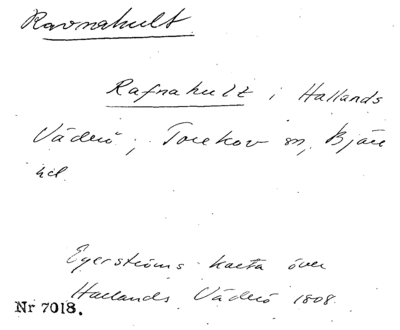 Ravnakult
Rafnakult i Hallands
Väderö, Torekov sn, Bjäre
hd.
Egerströms karta över
Hallands Väderö 1808.
Nr 7018.